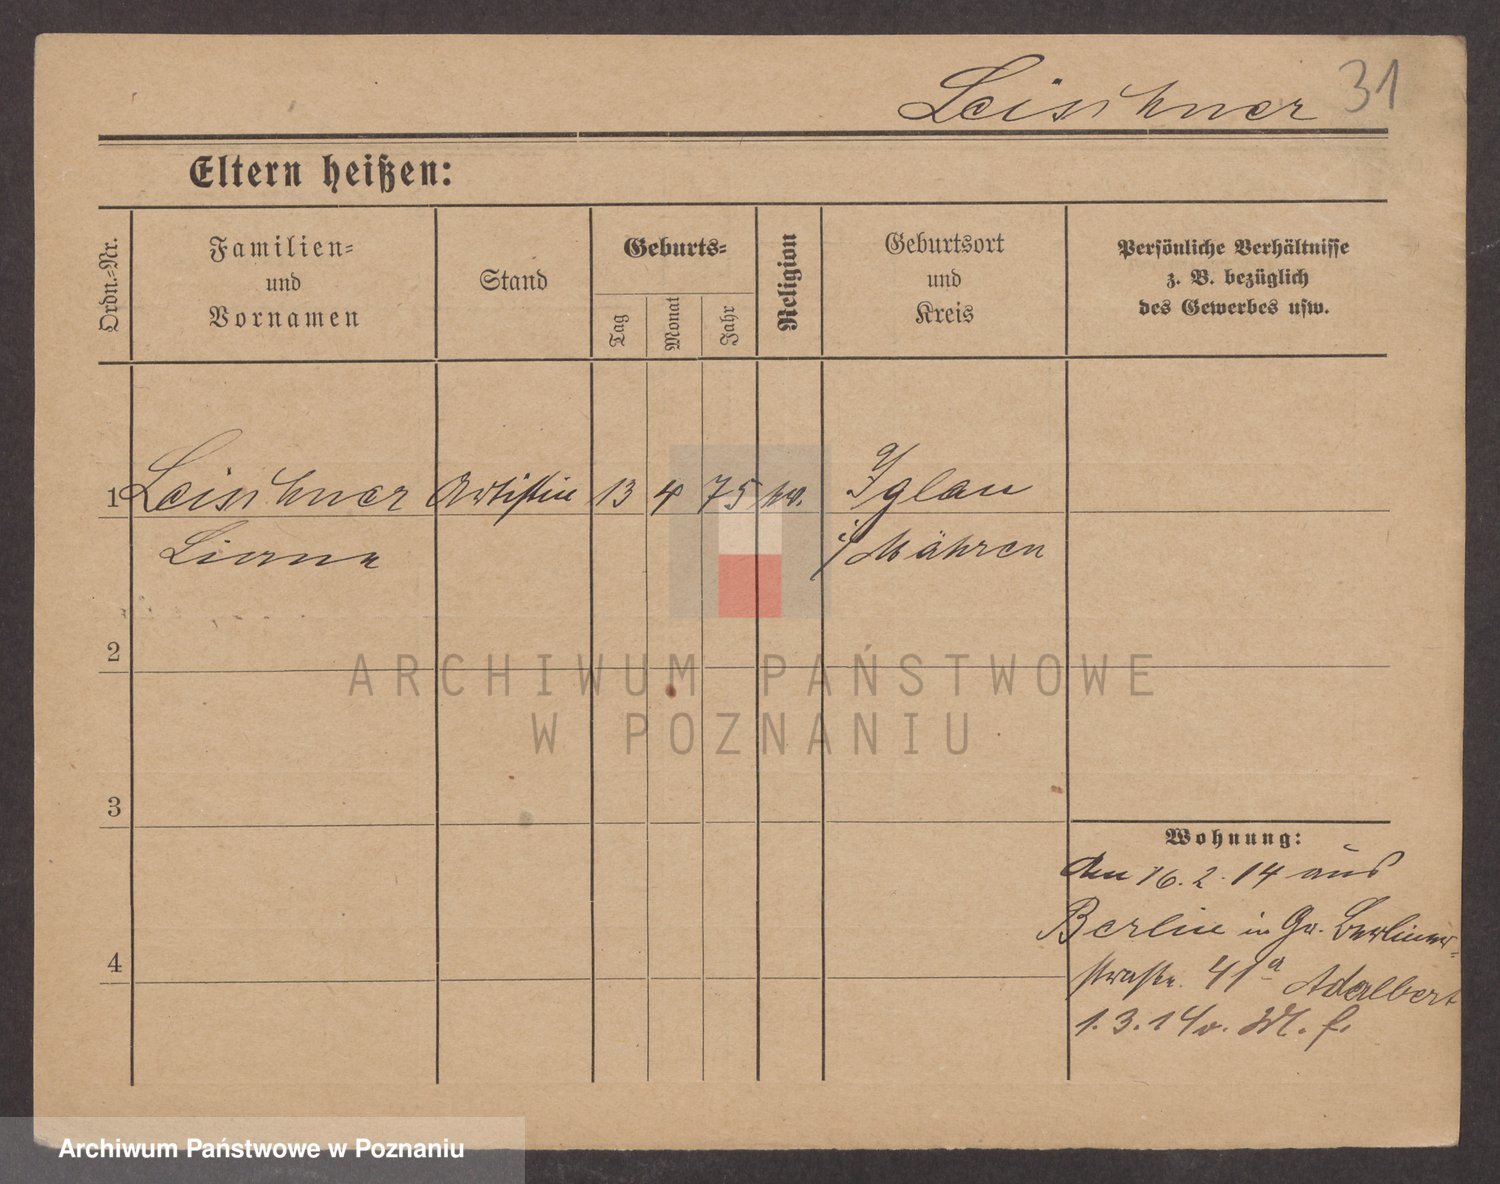 Leischner 31
Eltern heißen:
Ordn.-Nr.
Familien-
und
Vornamen
Stand
Geburts-
Tag
Monat
Jahr
Religion
Geburtsort
und
Kreis
Persönliche Verhältnisse
z. B. bezüglich
des Gewerbes usw.
1 Leischner Artistin 13 4 75 Iglau
i/Mähren
2
3
4
ARCHIWUM PAŃSTWOWE
W POZNANIU
Wohnung:
16.2.14 aus
Berlin in Gr. Berliner-
straße 41a Adalbert
1.3.14
Archiwum Państwowe w Poznaniu